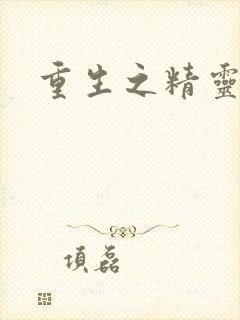 重生之精靈
項磊